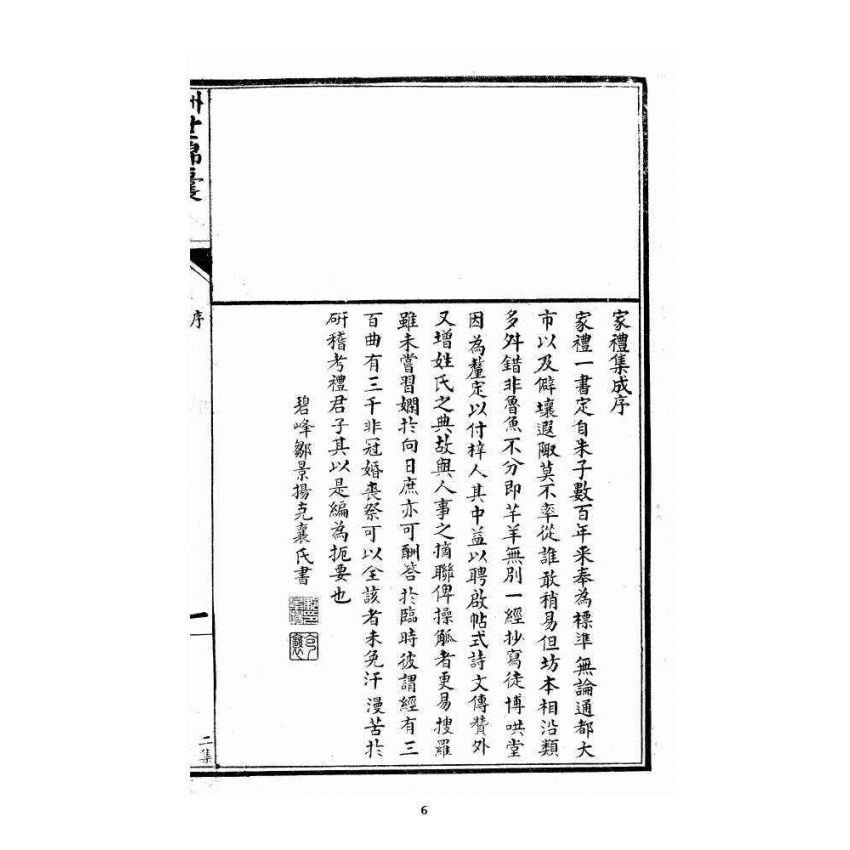 家禮集成序
家禮一書定自朱子數百年來奉為標準無論通都大
市以及僻壤遐陬莫不率從誰敢稍易但坊本相沿類
多舛錯非魯魚不分即芊羊無別一經抄寫徒博哄堂
因為釐定以付梓人其中益以聘啟帖式詩文傳贊外
又增姓氏之典故與人事之摘聯俾操觚者更易搜羅
雖未嘗習嫻於向日庶亦可酬答於臨時彼謂經有三
百曲有三千非冠婚喪祭可以全該者未免汗漫苦於
研稽考禮君子其以是編為扼要也
碧峰鄒景揚克襄氏書
酬世錦囊
序
一
二集
6